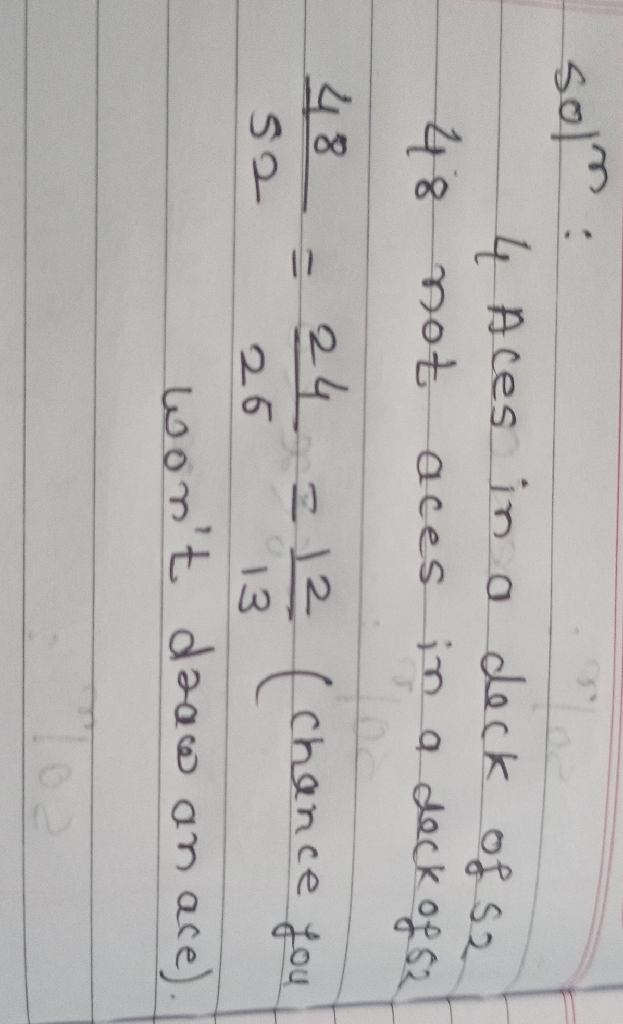 soln:
4 Aces in a deck of 52
48 not aces in a deck of 52
48/52 = 24/26 = 12/13 (chance you
won't draw an ace).